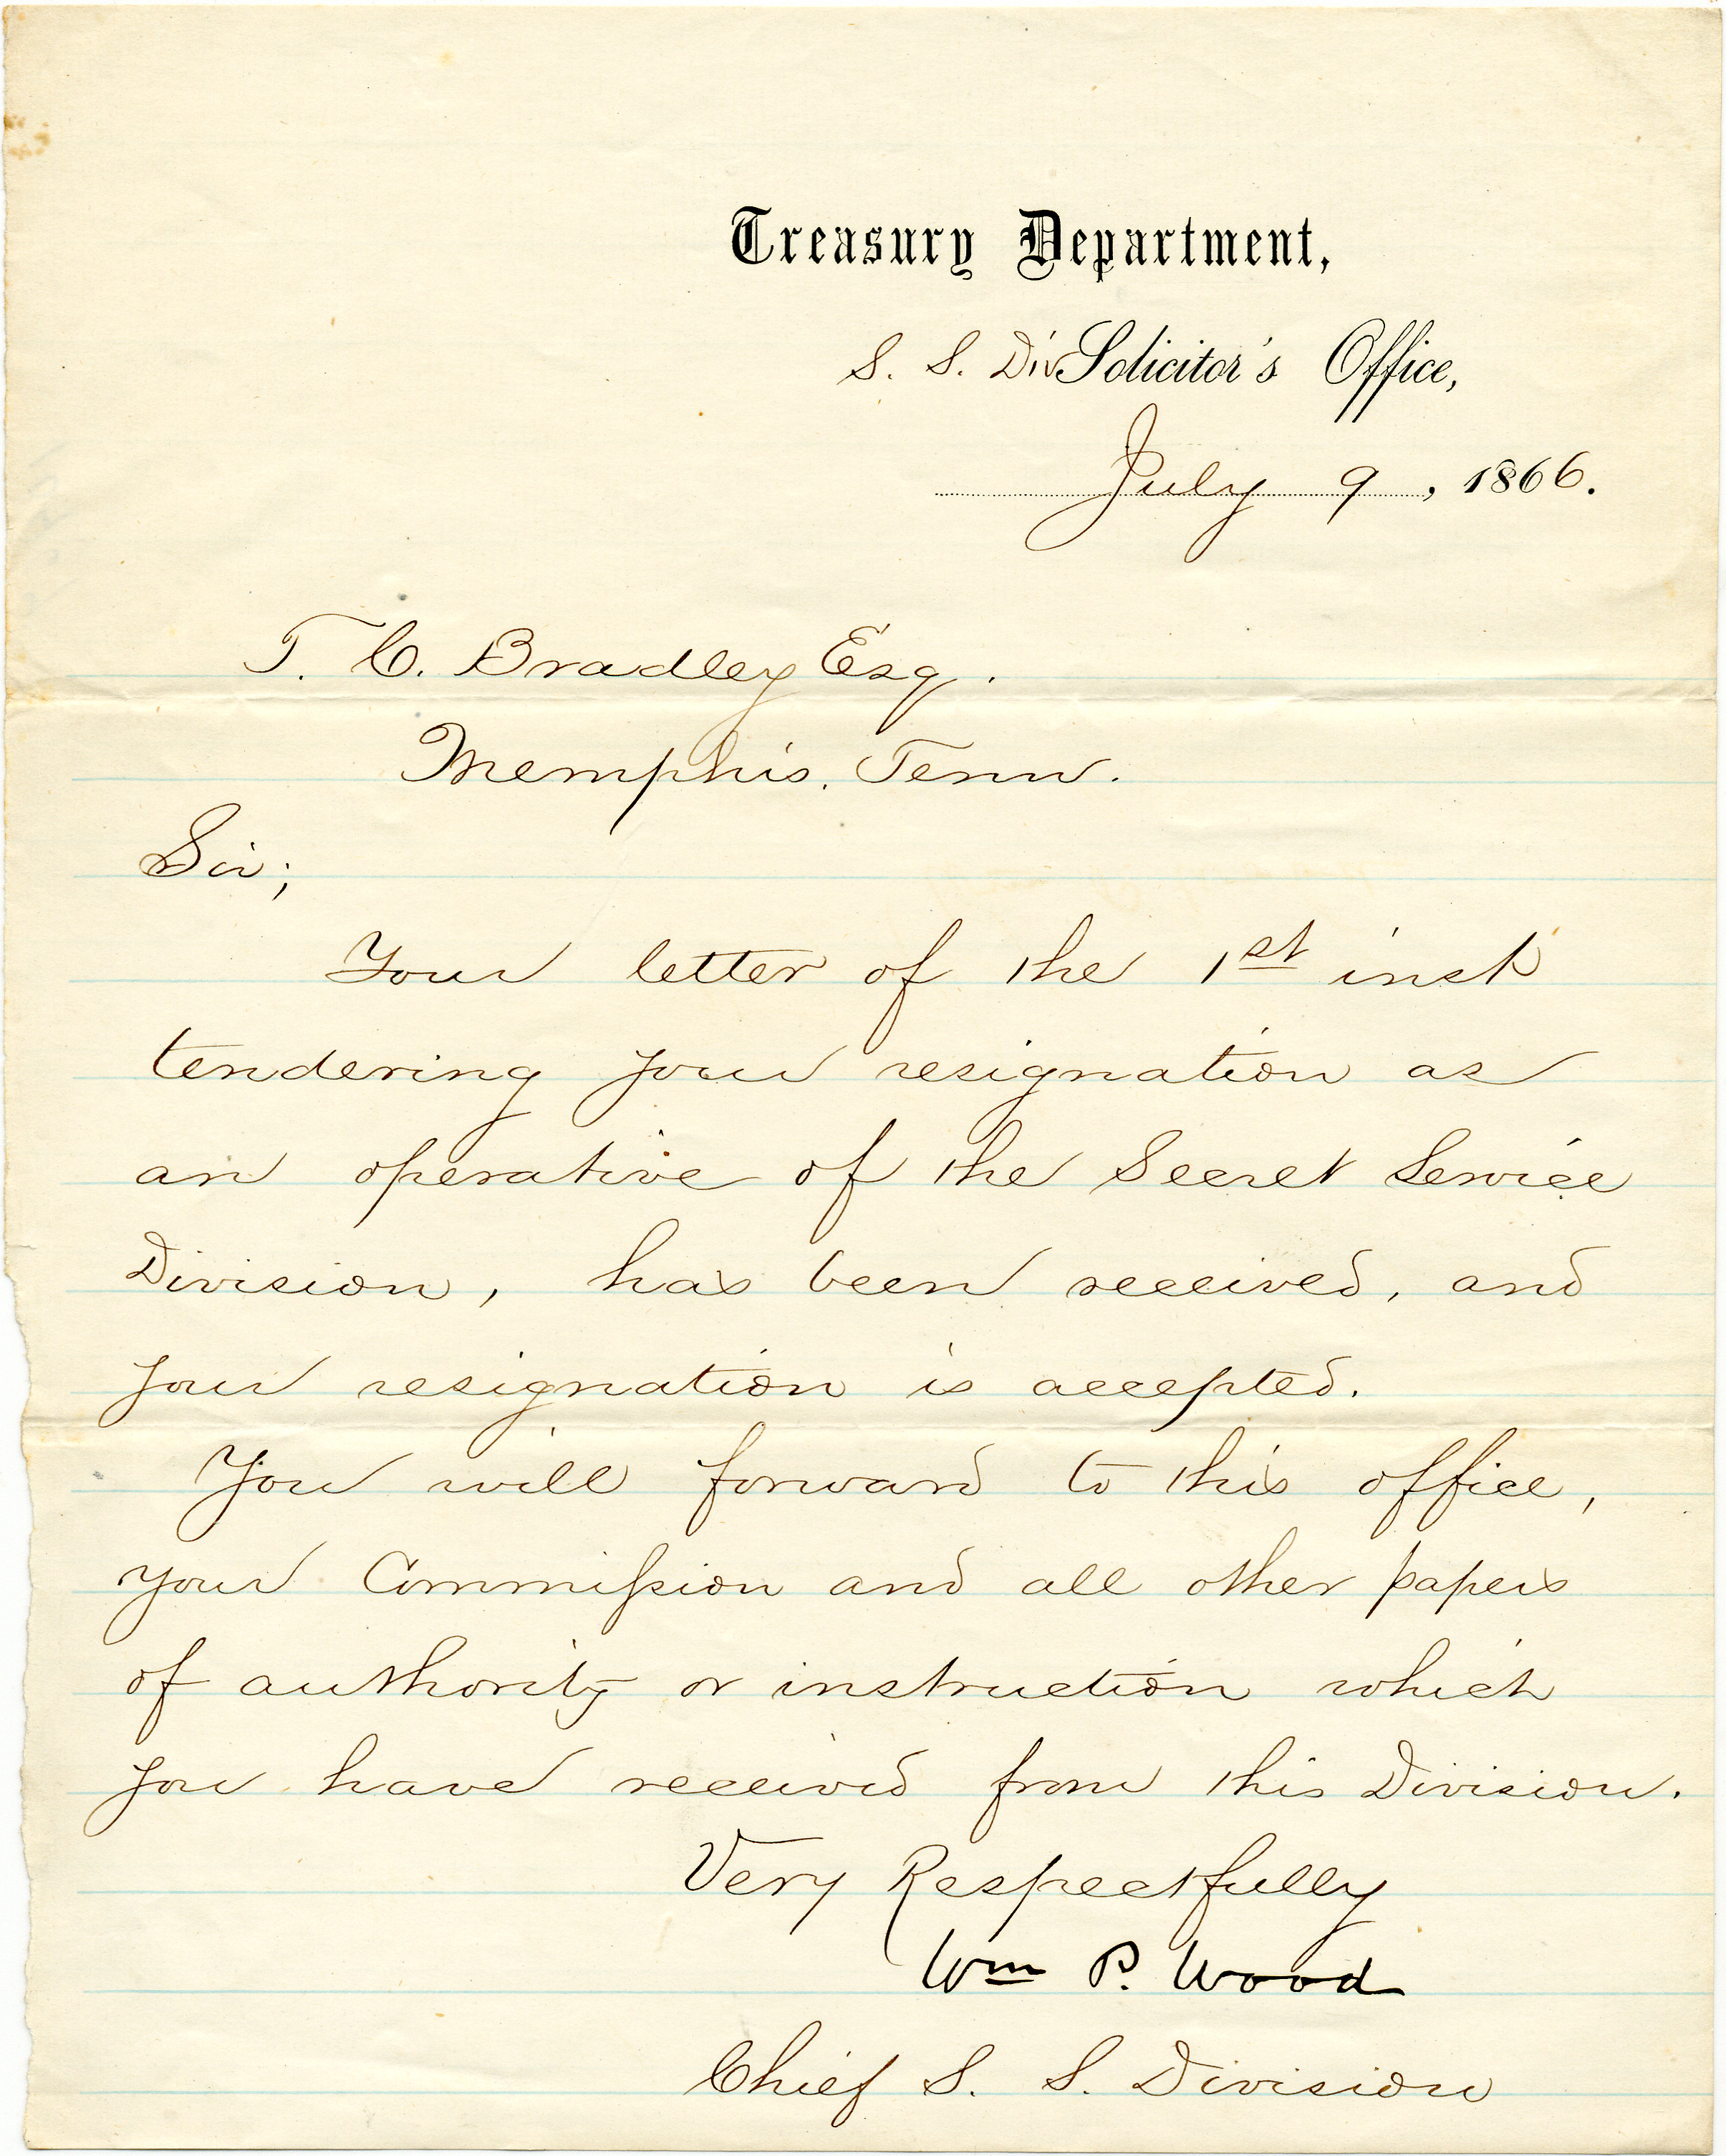 Treasury Department,
S. S. Div Solicitor's Office,
July 9, 1866.
T. C. Bradley Esq.
Memphis, Tenn.
Sir;
Your letter of the 1st inst
tendering your resignation as
an operative of the Secret Service
Division, has been received, and
your resignation is accepted.
You will forward to this office,
your Commission and all other papers
of authority or instruction which
you have received from this Division.
Very Respectfully
Wm P. Wood
Chief S. S. Division